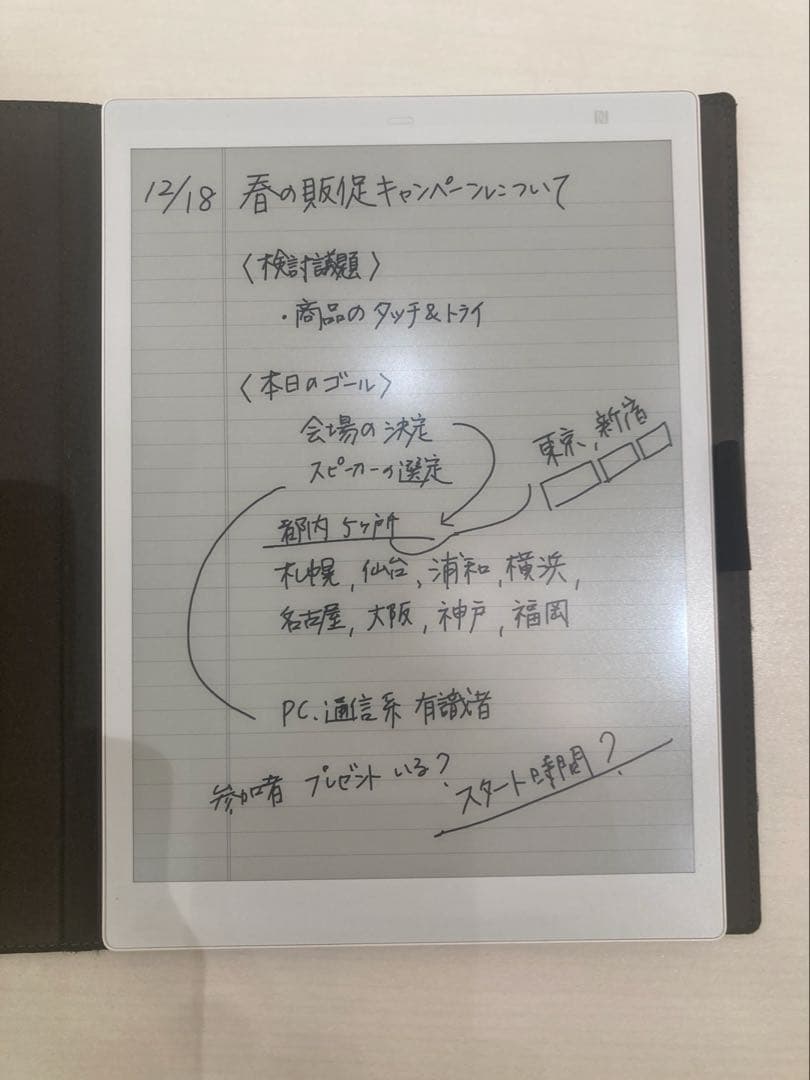 12/18 春の販促キャンペーンについて
〈検討議題〉
・商品のタッチ&トライ
〈本日のゴール〉
会場の決定
スピーカーの選定
東京、新宿
都内5ヶ所
札幌,仙台,浦和,横浜,
名古屋,大阪,神戸,福岡
PC.通信系 有識者
参加者 プレゼント いる?
スタート時間?